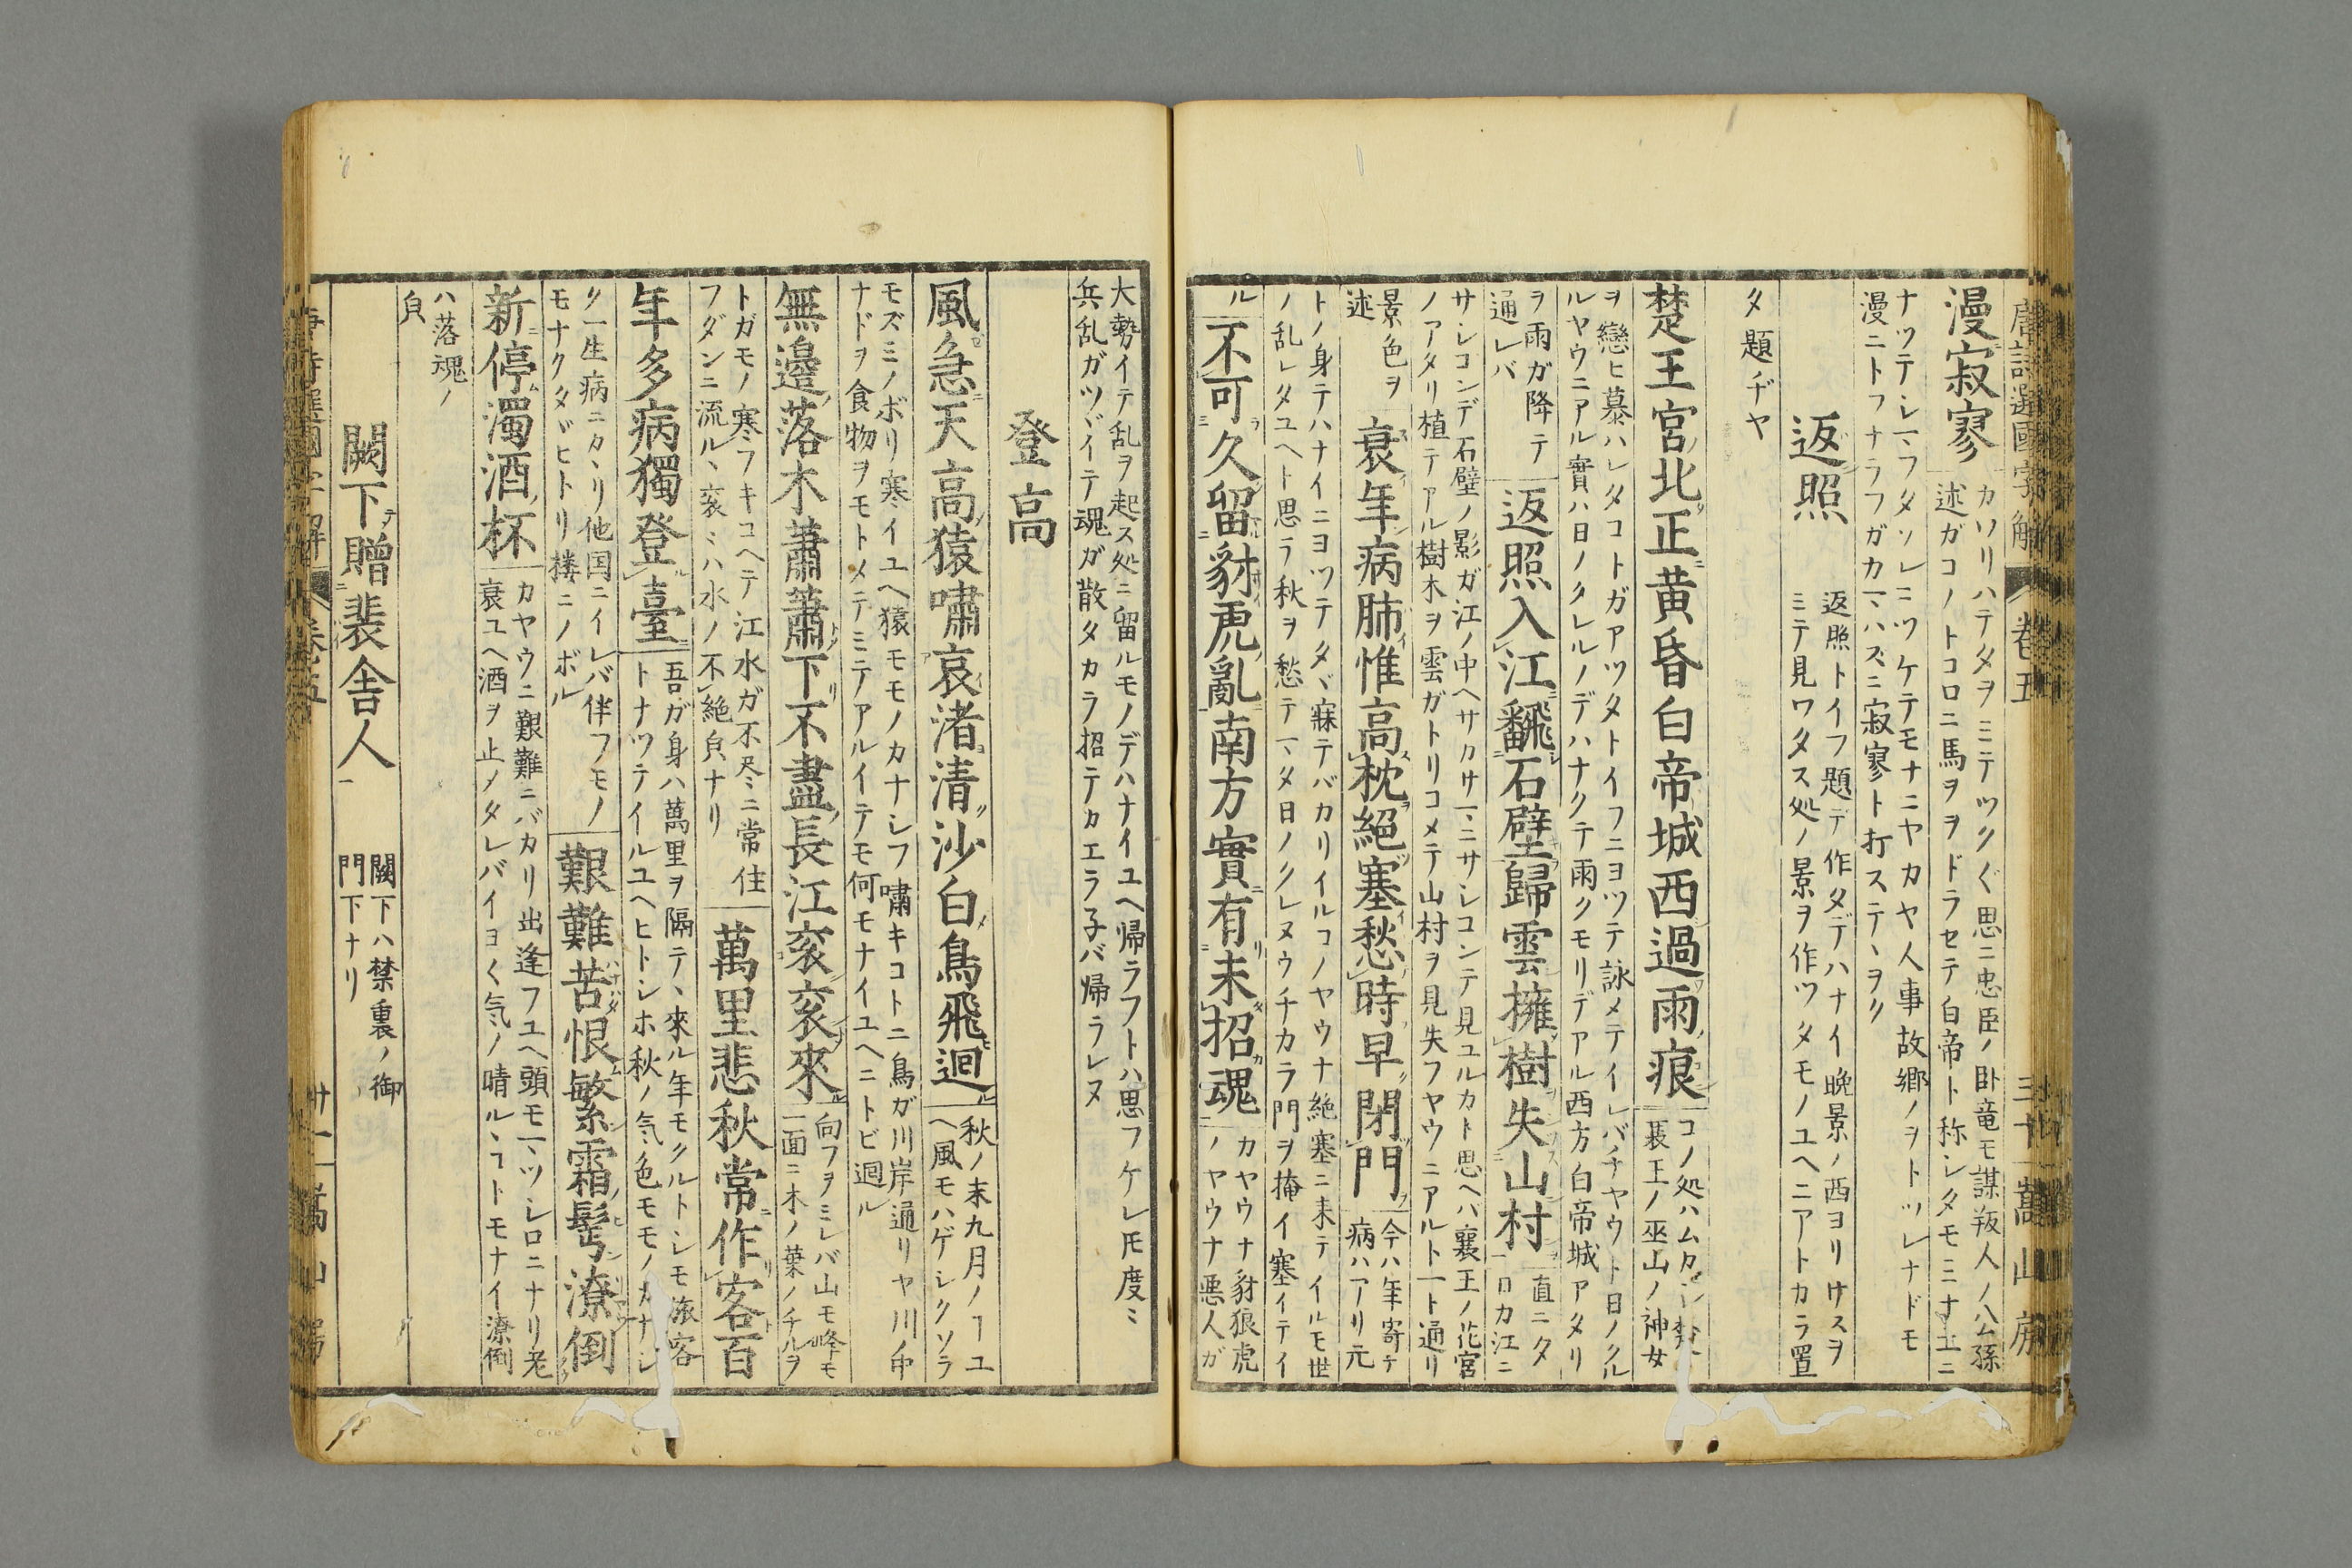 唐詩選國字解 巻五 三十 嵩山房
漫寂寥
カソリハテタヲミテツク〴〵思ニ忠臣ノ卧竜モ謀叛人ノ公孫
述ガコノトコロニ馬ヲヲドラセテ白帝ト称シタモミナ土ニ
ナツテシマフタソレニツケテモナニヤカヤ人事故郷ノヲトツレナドモ
漫ニトフナラフガカマハズニ寂寥ト打ステヽヲク
返照
返照トイフ題デ作タデハナイ晩景ノ西ヨリサスヲ
ミテ見ワタス処ノ景ヲ作ツタモノユヘニアトカラ置
タ題ヂヤ
楚王宮北正黄昏白帝城西過雨痕
コノ処ハムカシ楚
襄王ノ巫山ノ神女
ヲ戀ヒ慕ハレタコトガアツタトイフニヨツテ詠メテイレバチヤウト日ノクル
ルヤウニアル實ハ日ノクレルノデハナクテ雨クモリデアル西方白帝城アタリ
ヲ雨ガ降テ
通レバ
返照入江翻石壁歸雲擁樹失山村
直ニタ
日カ江ニ
サシコンデ石壁ノ影ガ江ノ中ヘサカサマニサシコンテ見ユルカト思ヘハ襄王ノ花宮
ノアタリ植テアル樹木ヲ雲ガトリコメテ山村ヲ見失フヤウニアルト一ト通リ
景色ヲ
述
衰年病肺惟高枕絕塞愁時早閉門
今ハ年寄テ
病ハアリ元
トノ身テハナイニヨツテタヾ寐テバカリイルコノヤウナ絶塞ニ来テイルモ世
ノ乱レタユヘト思ラ秋ヲ愁テマタ日ノクレヌウチカラ門ヲ掩イ塞イテイ
ル
不可久留豺虎亂南方實有未招魂
カヤウナ豺狼虎
ノヤウナ悪人ガ
大勢イテ乱ヲ起ス処ニ留ルモノデハナイユヘ帰ラフトハ思フケレ𪜈度ミ
兵乱ガツヾイテ魂ガ散タカラ招テカエラ子バ帰ラレヌ
登高
風急天高猿嘯哀渚清沙白鳥飛迴
秋ノ末九月ノヿユ
ヘ風モハゲシクソラ
モズミノボリ寒イユヘ猿モモノカナシフ嘯キコトニ鳥ガ川岸通リヤ川中
ナドヲ食物ヲモトメテミニテアルイテモ何モナイユヘニトビ迴ル
無邊落木蕭蕭下不盡長江衮衮來
向フヲミレバ山モ峰モ
一面ニ木ノ葉ノチルヲ
トガモノ寒フキコヘテ江水ガ不尽ニ常住
フダンニ流ルヽ衮ミハ水ノ不絶皃ナリ
萬里悲秋常作客百
年多病獨登臺
吾ガ身ハ萬里ヲ隔テヽ來ル年モクルトシモ旅客
トナツテイルユヘヒトシホ秋ノ気色モモノカナシ
ク一生病ニカヽリ他国ニイレバ伴フモノ
モナクタヾヒトリ楼ニノボル
艱難苦恨繁霜鬢潦倒
新停濁酒杯
カヤウニ艱難ニバカリ出逢フユヘ頭モマツシロニナリ老
衰ユヘ酒ヲ止メタレバイヨ〳〵気ノ晴ルヽコトモナイ潦倒
ハ落魂ノ
皃
闕下贈裴舎人
闕下ハ禁裏ノ御
門下ナリ
唐詩選國字解 巻五 卅一 嵩山房